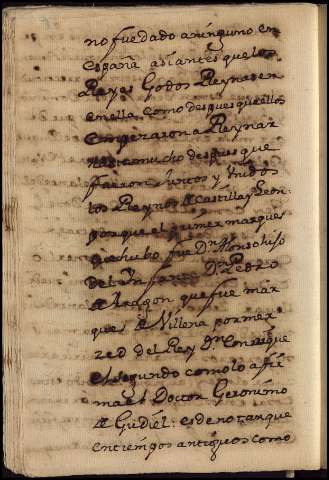 no fue dado a ninguno en
España así antes que los
Reyes Godos Reynasen
en ella, como despues que ellos
empezaron a Reynar
hasta mucho despues que
fueron Juntos y Vnidos
los Reynos de Castilla y Leon:
porque el primer marques
que hubo fue Dn. Alonso hijo
del Infante Dn. Pedro
de Aragon que fue mar
ques de Villena por mer
zed del Rey Dn. Enrrique
el segundo como lo afir
ma el Doctor Geronimo
de Gudiel: es de notar que
en tiempos antiguos como